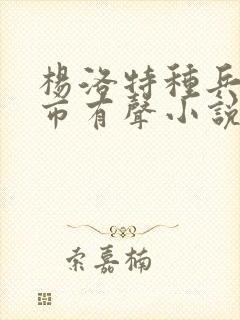 楊洛特種兵
市有聲小說
索嘉楠